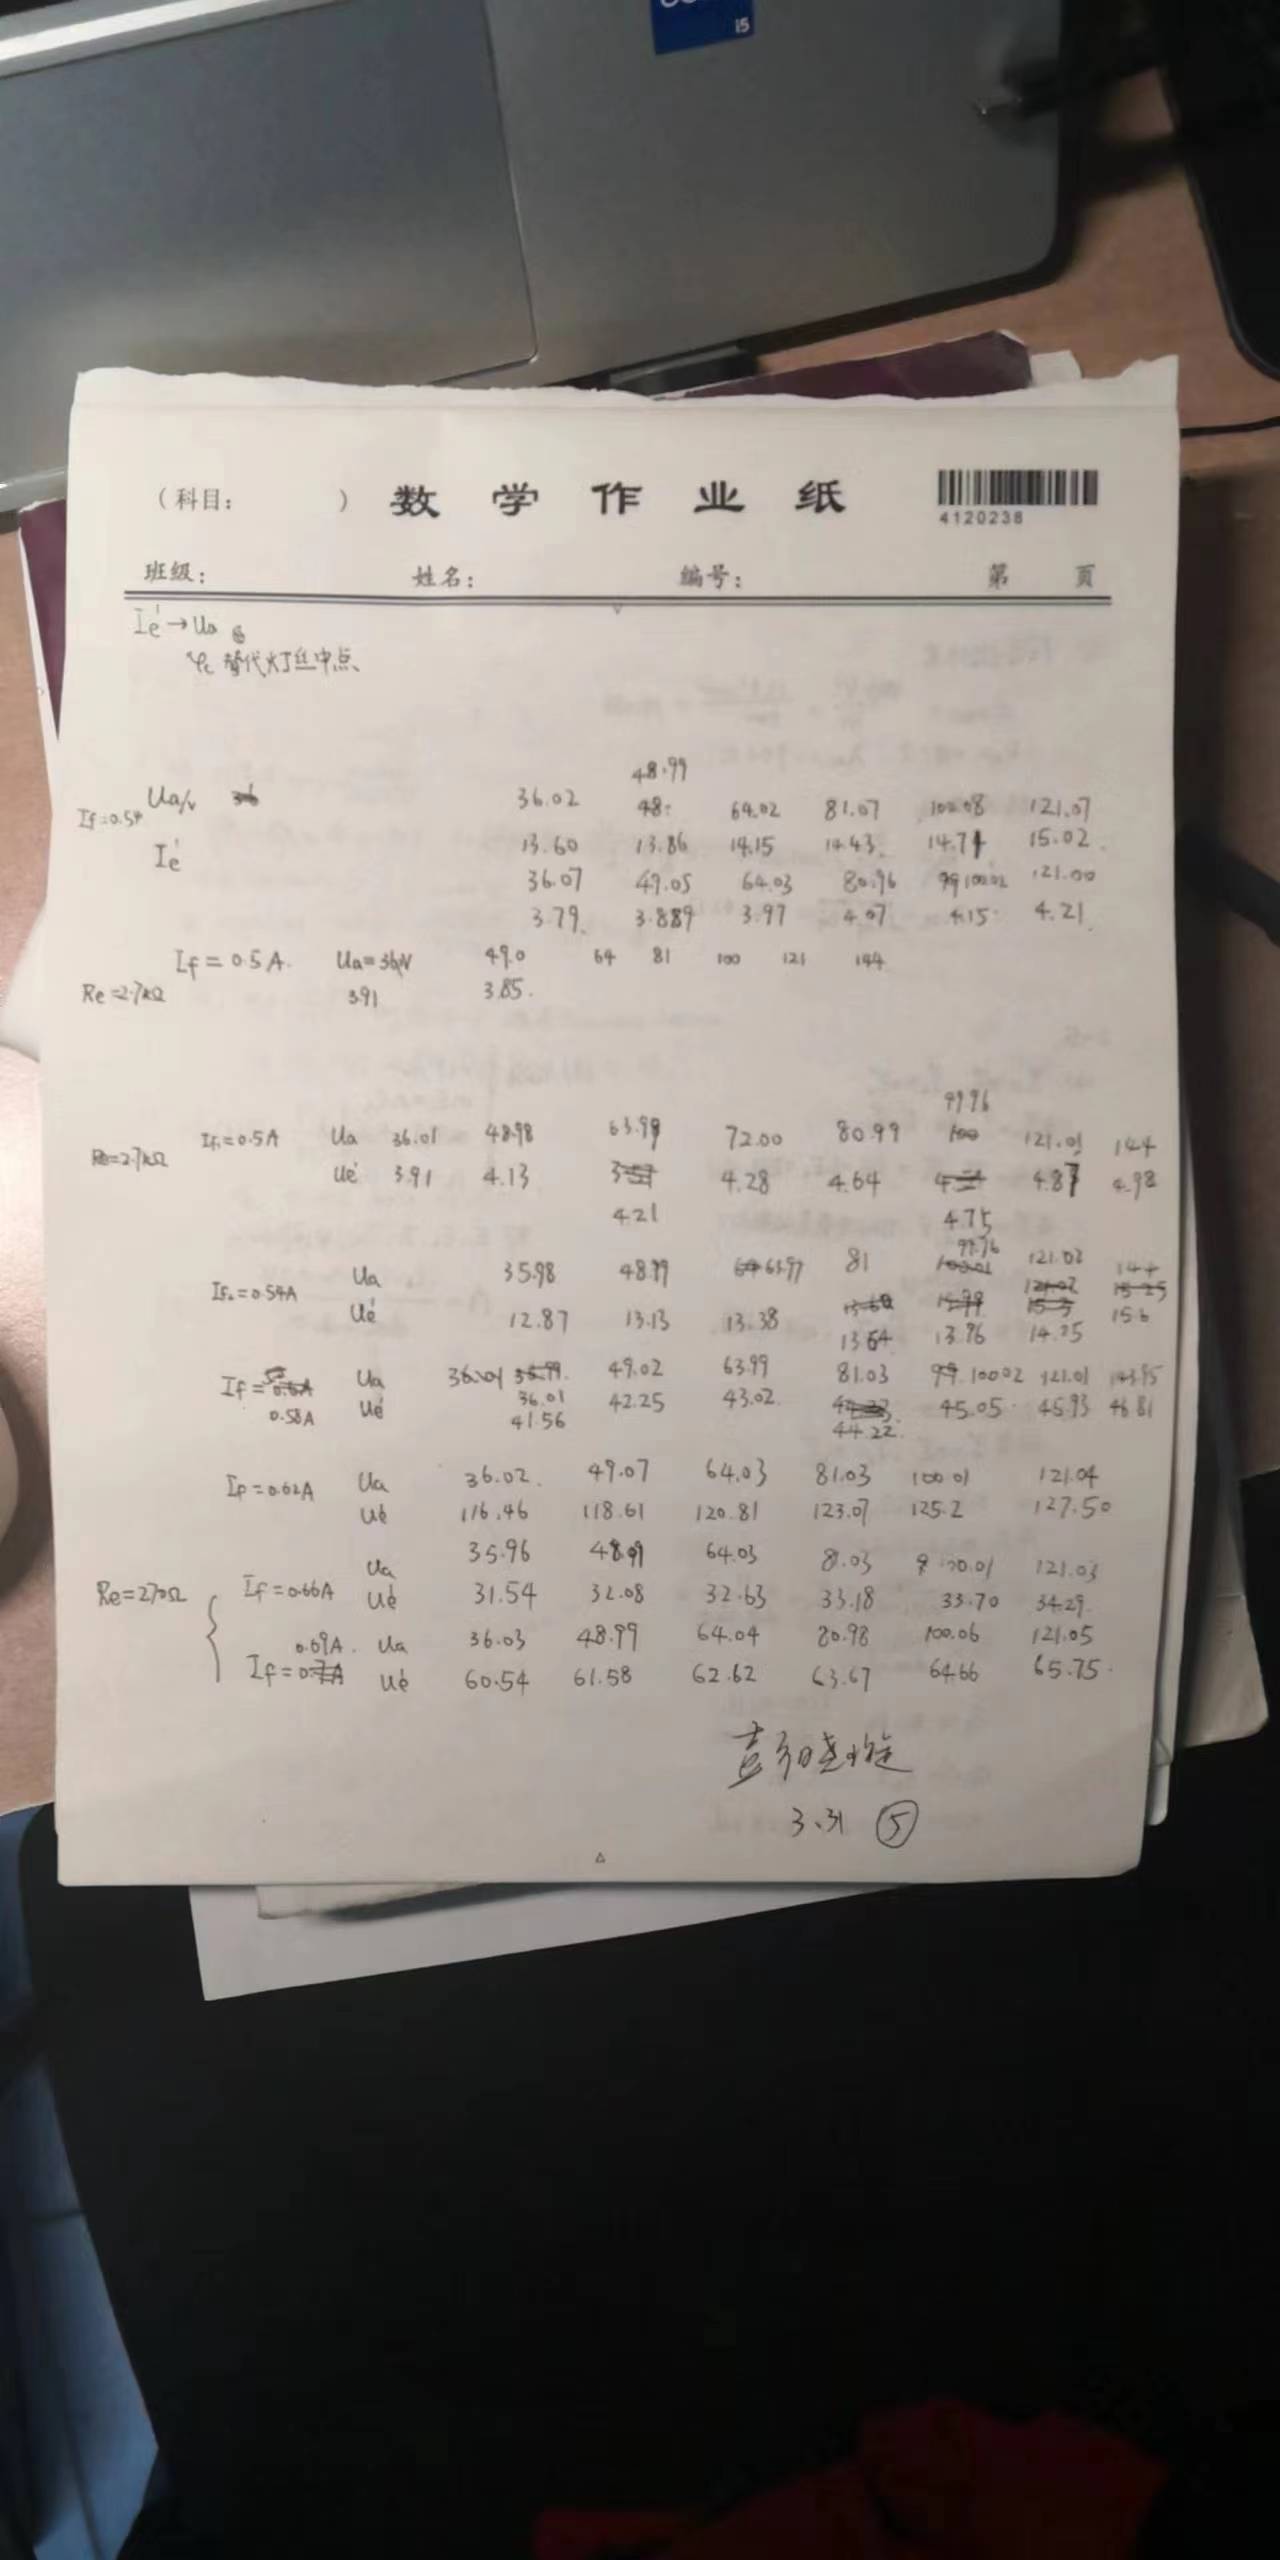 i5
（科目：　　　） 数 学 作 业 纸
4120238
班级： 姓名： 编号： 第 页
Ie' → Ua
φc 替代灯丝中点
48.99
If=0.54 Ua/v 36.02 48. 64.02 81.07 100.08 121.07
Ie' 13.60 13.86 14.15 14.43 14.71 15.02
36.07 49.05 64.03 80.96 99 100.02 121.00
3.79 3.889 3.97 4.07 4.15 4.21
If=0.5A. Ua=36V 49.0 64 81 100 121 144
Re=2.7kΩ 3.91 3.85.
99.96
Re=2.7kΩ If1=0.5A Ua 36.01 48.98 63.99 72.00 80.99 100 121.01 144
Ue' 3.91 4.13 4.28 4.64 4.87 4.98
4.21 4.75
If2=0.54A Ua 35.98 48.99 63.97 81 99.96 121.02 144
Ue' 12.87 13.13 13.38 13.64 13.96 14.25 15.6
If= 0.58A Ua 36.01 49.02 63.99 81.03 99 100.02 121.01 143.95
Ue' 36.01 41.56 42.25 43.02 44.22 45.05 45.93 46.81
If=0.62A Ua 36.02. 49.07 64.03 81.03 100.01 121.04
Ue' 116.46 118.61 120.81 123.07 125.2 127.50
Ua 35.96 48.99 64.03 81.03 100.01 121.03
Re=270Ω If=0.66A Ue' 31.54 32.08 32.63 33.18 33.70 34.29
0.69A. Ua 36.03 48.99 64.04 80.98 100.06 121.05
If=0.7A Ue' 60.54 61.58 62.62 63.67 64.66 65.75.
3.31 ⑤